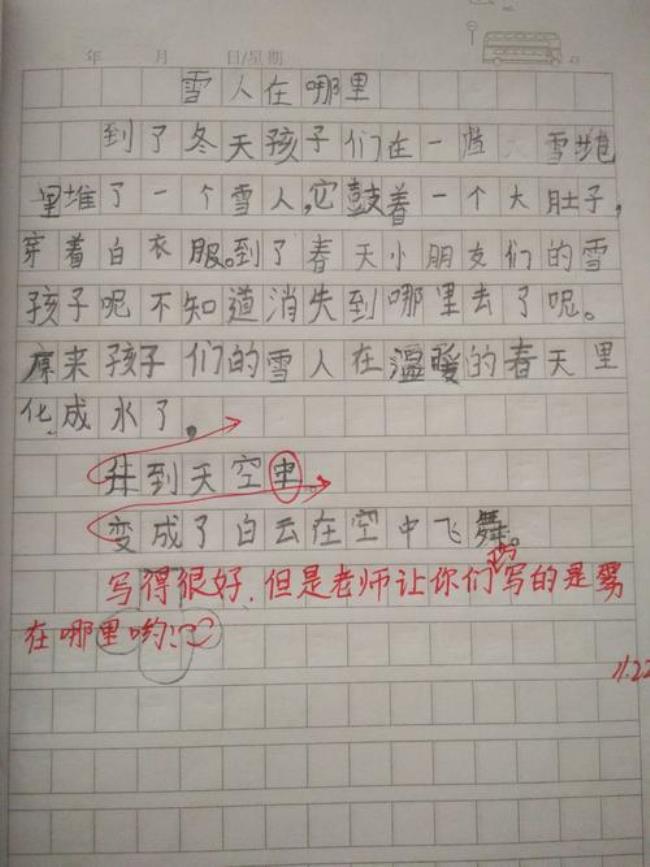 年 月 日/星期
雪人在哪里
到了冬天孩子们在一 雪地
里堆了一个雪人,它鼓着一个大肚子,
穿着白衣服。到了春天小朋友们的雪
孩子呢不知道消失到哪里去了呢。
原来孩子们的雪人在温暖的春天里
化成水了。
升到天空中
变成了白云在空中飞舞。
写得很好,但是老师让你们写的是雾
在哪里哟!
11.22